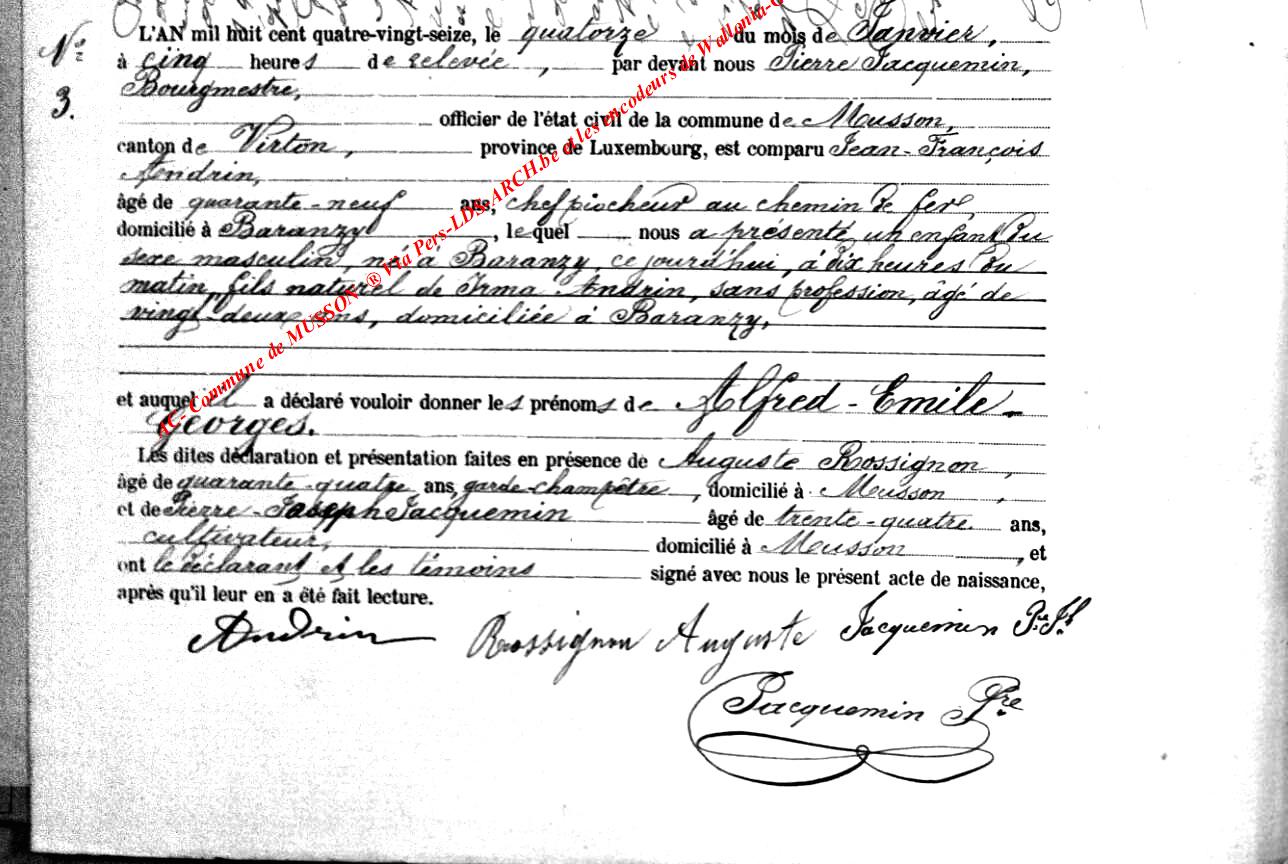 L'AN mil huit cent quatre-vingt-seize, le quatorze du mois de Janvier,
Nº à cinq heures de relevée, par devant nous Pierre Jacquemin,
3. Bourgmestre,
officier de l'état civil de la commune de Musson,
canton de Virton, province de Luxembourg, est comparu Jean-François
Andrin,
âgé de quarante-neuf ans, chef piocheur au chemin de fer,
domicilié à Baranzy, lequel nous a présenté un enfant du
sexe masculin, né à Baranzy, ce jourd'hui, à dix heures du
matin, fils naturel de Irma Andrin, sans profession, âgé de
vingt-deux ans, domiciliée à Baranzy,
et auquel il a déclaré vouloir donner les prénoms de Alfred-Emile-
Georges.
Les dites déclaration et présentation faites en présence de Auguste Rossignon,
âgé de quarante-quatre ans, garde-champêtre, domicilié à Musson,
et de Pierre-Joseph Jacquemin âgé de trente-quatre ans,
cultivateur, domicilié à Musson, et
ont le déclarant et les témoins signé avec nous le présent acte de naissance,
après qu'il leur en a été fait lecture.
Andrin Rossignon Auguste Jacquemin Pre. Jh
Jacquemin Pre
AC- Commune de MUSSON ® Via Pers-LDS-ARCH.be et les encodeurs de Wallonia-G